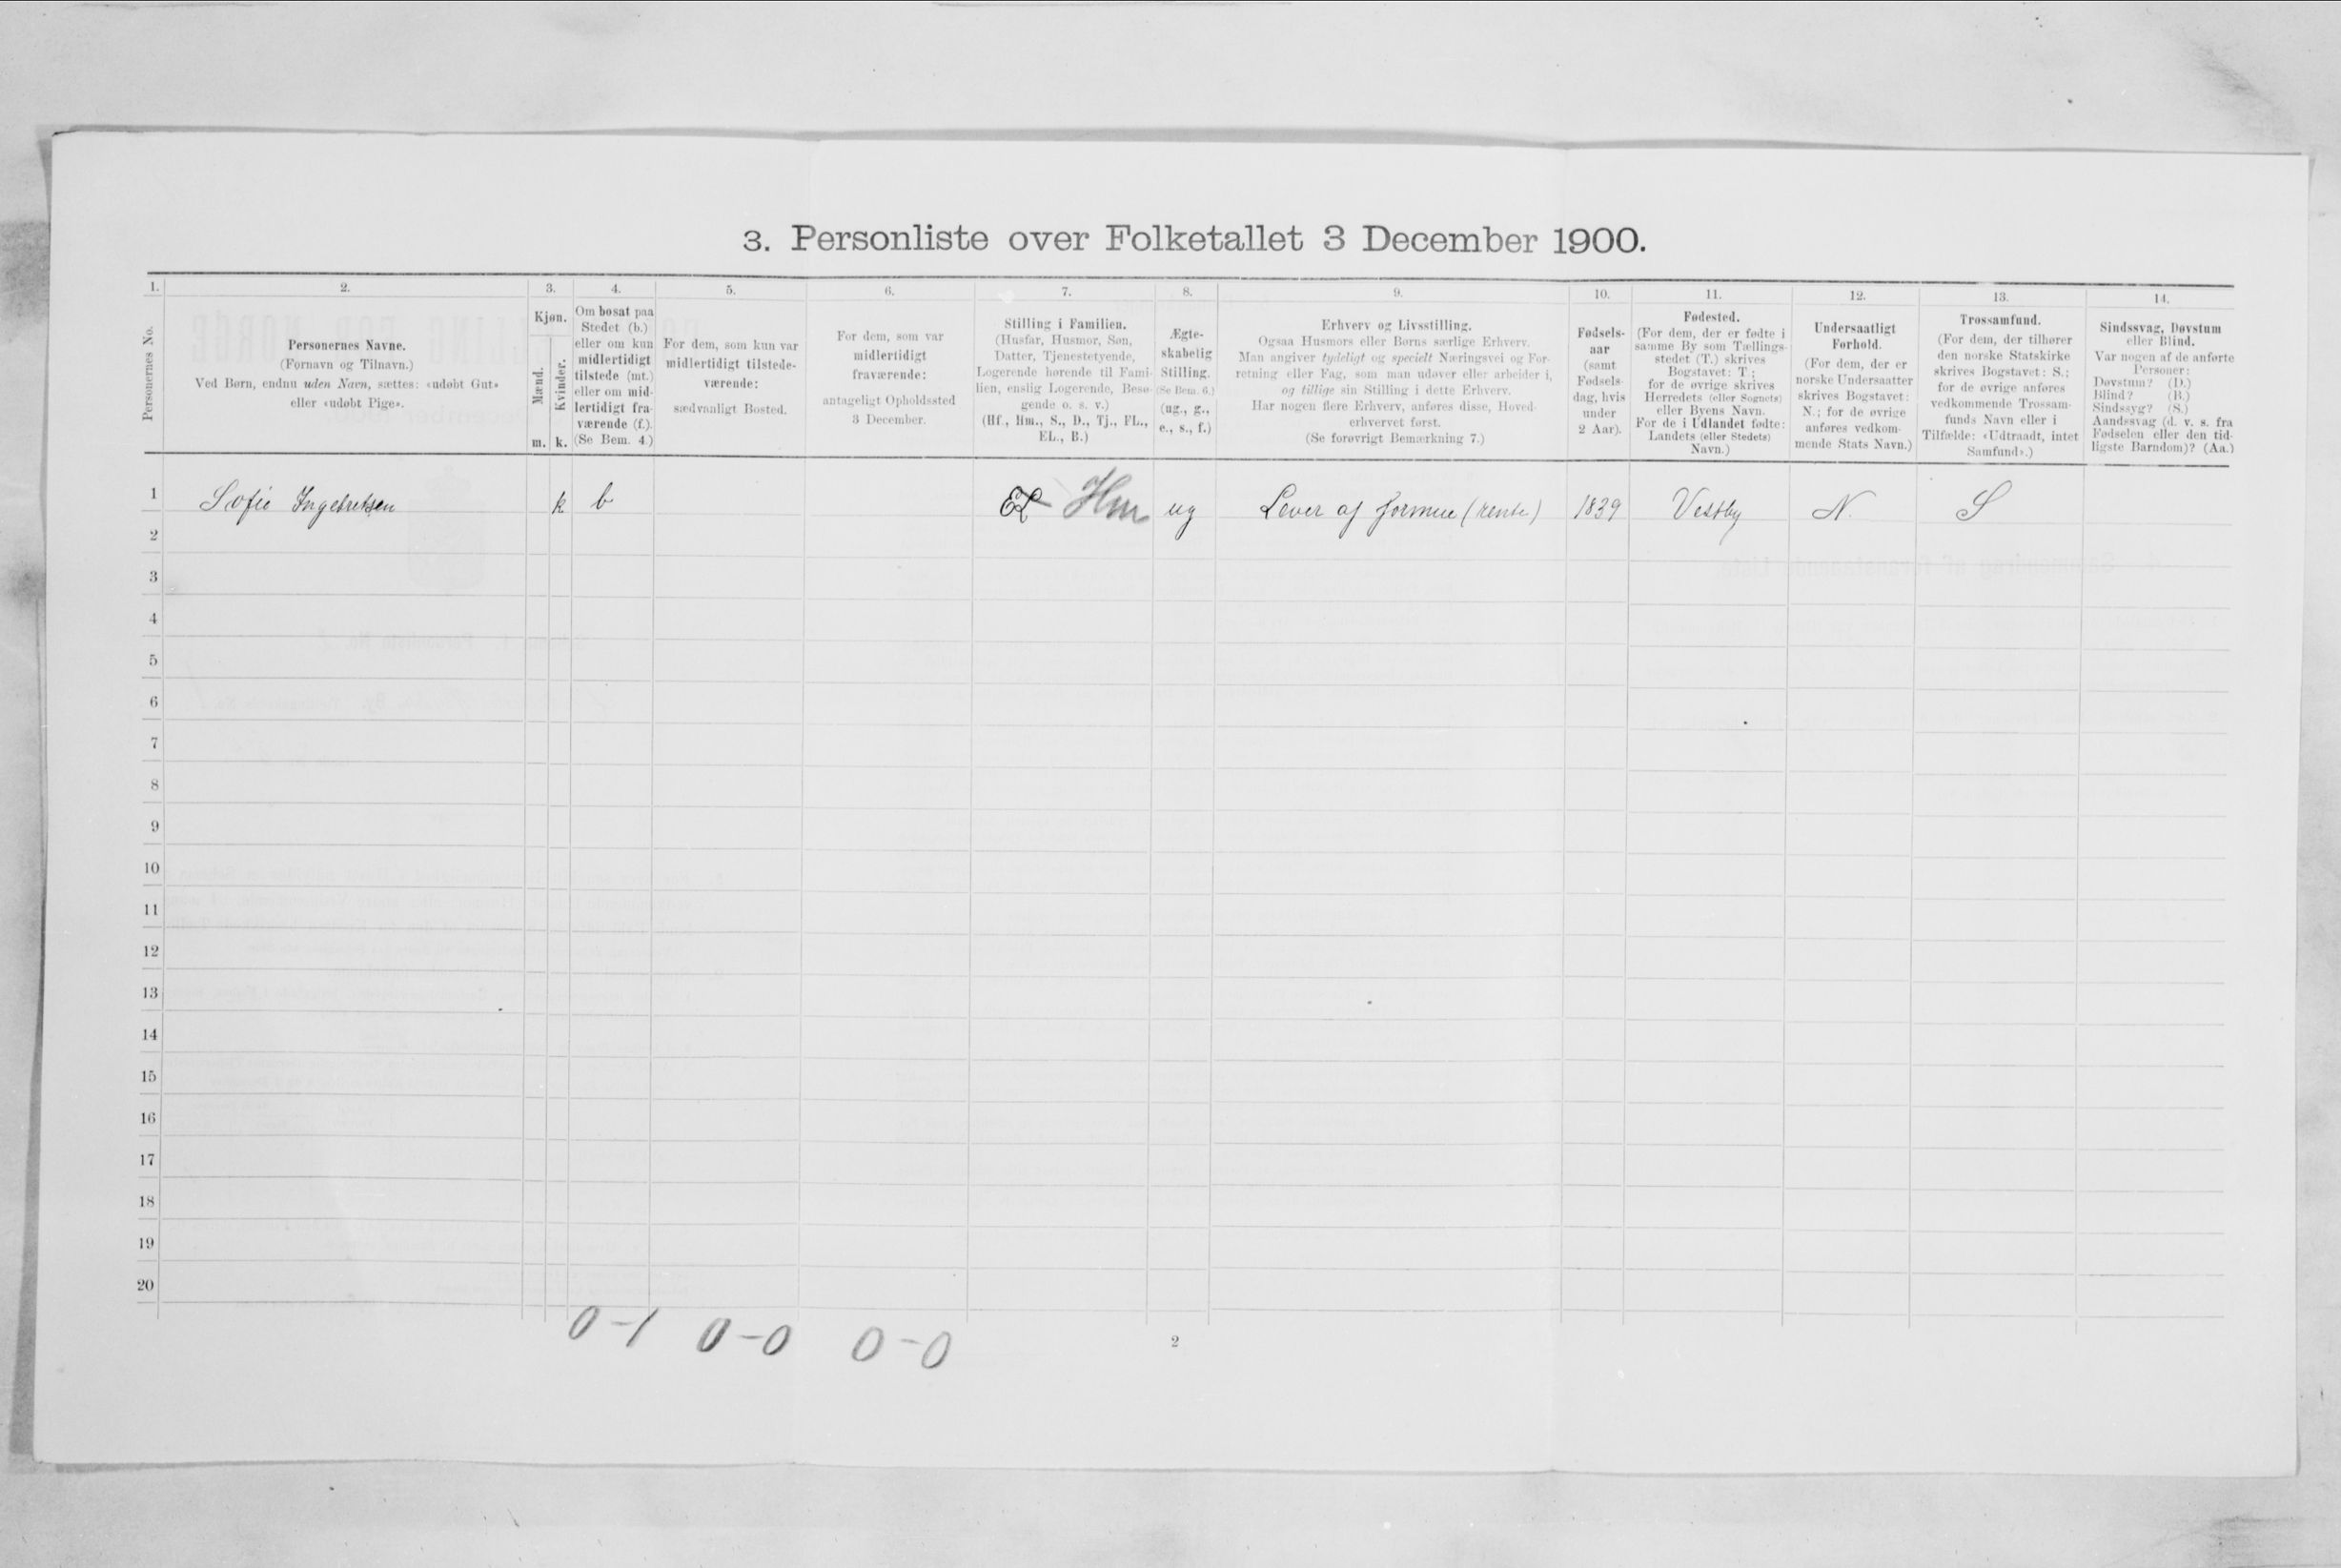 3. Personliste over Folketallet 3 December 1900.
1. 2. 3. 4. 5. 6. 7. 8. 9. 10. 11. 12. 13. 14.
Personernes No.
Personernes Navne.
(Fornavn og Tilnavn.)
Ved Børn, endnu uden Navn, sættes: «udøbt Gut»
eller «udøbt Pige».
Kjøn.
Mænd.
Kvinder.
m. k.
Om bosat paa
Stedet (b.)
eller om kun
midlertidigt
tilstede (mt.)
eller om mid-
lertidigt fra-
værende (f.).
(Se Bem. 4.)
For dem, som kun var
midlertidigt tilstede-
værende:
sædvanligt Bosted.
For dem, som var
midlertidigt
fraværende:
antageligt Opholdssted
3 December.
Stilling i Familien.
(Husfar, Husmor, Søn,
Datter, Tjenestetyende,
Logerende hørende til Fami-
lien, enslig Logerende, Besø-
gende o. s. v.)
(Hf., Hm., S., D., Tj., FL.,
EL., B.)
Ægte-
skabelig
Stilling.
(Se Bem. 6.)
(ug., g.,
e., s., f.)
Erhverv og Livsstilling.
Ogsaa Husmors eller Børns særlige Erhverv.
Man angiver tydeligt og specielt Næringsvei og For-
retning eller Fag, som man udøver eller arbeider i,
og tillige sin Stilling i dette Erhverv.
Har nogen flere Erhverv, anføres disse, Hoved-
erhvervet først.
(Se forøvrigt Bemærkning 7.)
Fødsels-
aar
(samt
Fødsels-
dag, hvis
under
2 Aar).
Fødested.
(For dem, der er fødte i
samme By som Tællings-
stedet (T.) skrives
Bogstavet: T ;
for de øvrige skrives
Herredets (eller Sognets)
eller Byens Navn.
For de i Udlandet fødte:
Landets (eller Stedets)
Navn.)
Undersaatligt
Forhold.
(For dem, der er
norske Undersaatter
skrives Bogstavet:
N.; for de øvrige
anføres vedkom-
mende Stats Navn.)
Trossamfund.
(For dem, der tilhører
den norske Statskirke
skrives Bogstavet: S.;
for de øvrige anføres
vedkommende Trossam-
funds Navn eller i
Tilfælde: «Udtraadt, intet
Samfund».)
Sindssvag, Døvstum
eller Blind.
Var nogen af de anførte
Personer:
Døvstum? (D.)
Blind? (B.)
Sindssyg? (S.)
Aandssvag (d. v. s. fra
Fødselen eller den tid-
ligste Barndom)? (Aa.)
1 Sofie Ingebretsen k b EL Hm ug Lever af formue (rente) 1839 Vestby N. S
2
3
4
5
6
7
8
9
10
11
12
13
14
15
16
17
18
19
20
0-1 0-0 0-0
2